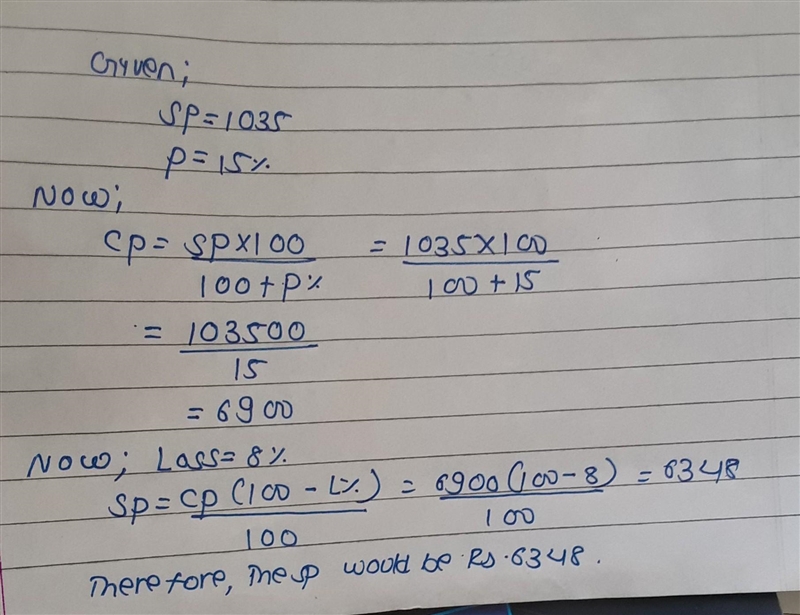 Given;
SP=1035
P=15%
Now;
CP= SP×100 / 100+P% = 1035×100 / 100+15
= 103500 / 15
= 6900
Now; Lass=8%
SP= CP(100-L%) / 100 = 6900(100-8) / 100 = 6348
Therefore, The SP would be Rs.6348.